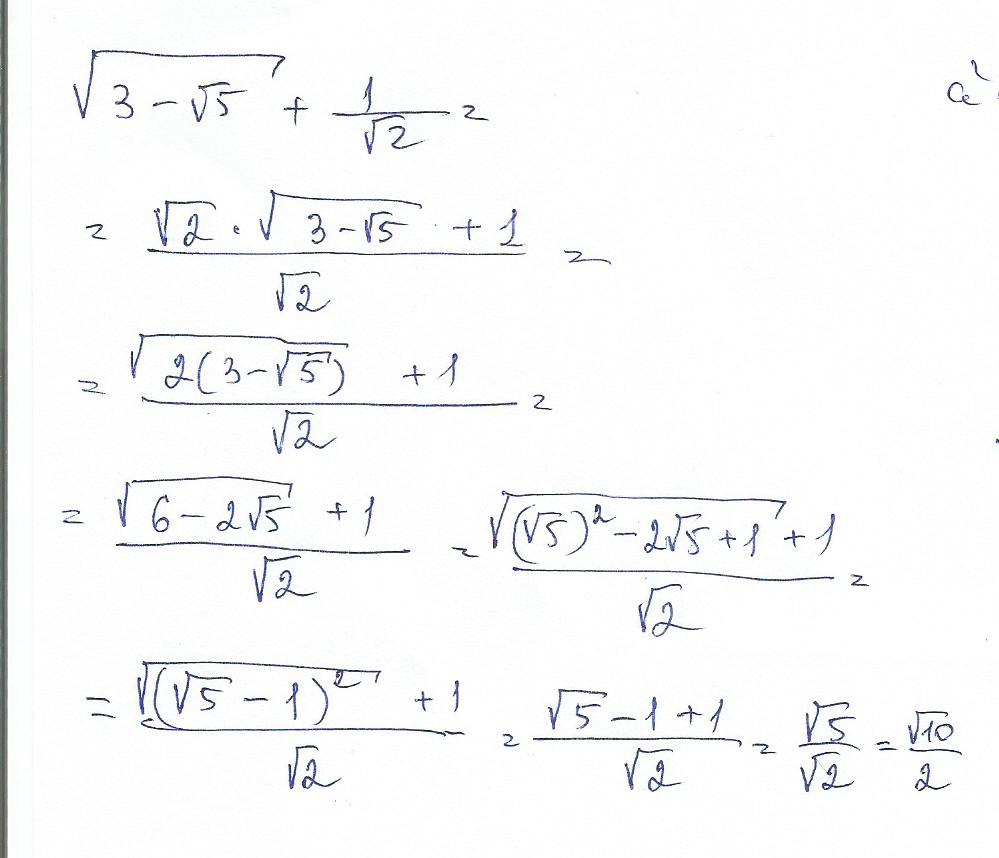 √(3 − √5) + 1/√2 =
a²
= (√2 · √(3 − √5) + 1)/√2 =
= (√(2(3 − √5)) + 1)/√2 =
= (√(6 − 2√5) + 1)/√2 = (√((√5)² − 2√5 + 1) + 1)/√2 =
= (√((√5 − 1)²) + 1)/√2 = (√5 − 1 + 1)/√2 = √5/√2 = √10/2